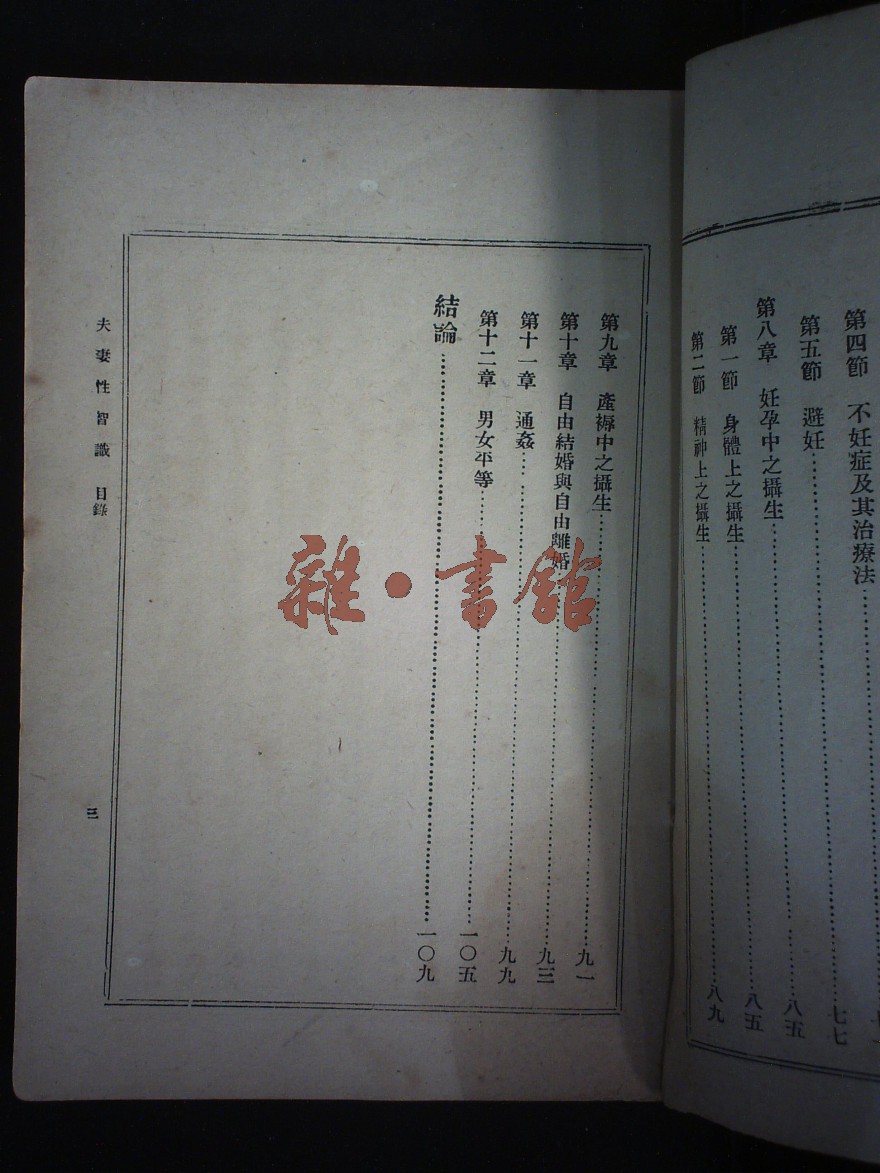 第四節　不妊症及其治療法
第五節　避妊……七七
第八章　妊孕中之攝生……八五
第一節　身體上之攝生……八五
第二節　精神上之攝生……八九
第九章　產褥中之攝生……九一
第十章　自由結婚與自由離婚……九三
第十一章　通姦……九九
第十二章　男女平等……一〇五
結論……一〇九
夫妻性智識　目錄
三
雜·書館